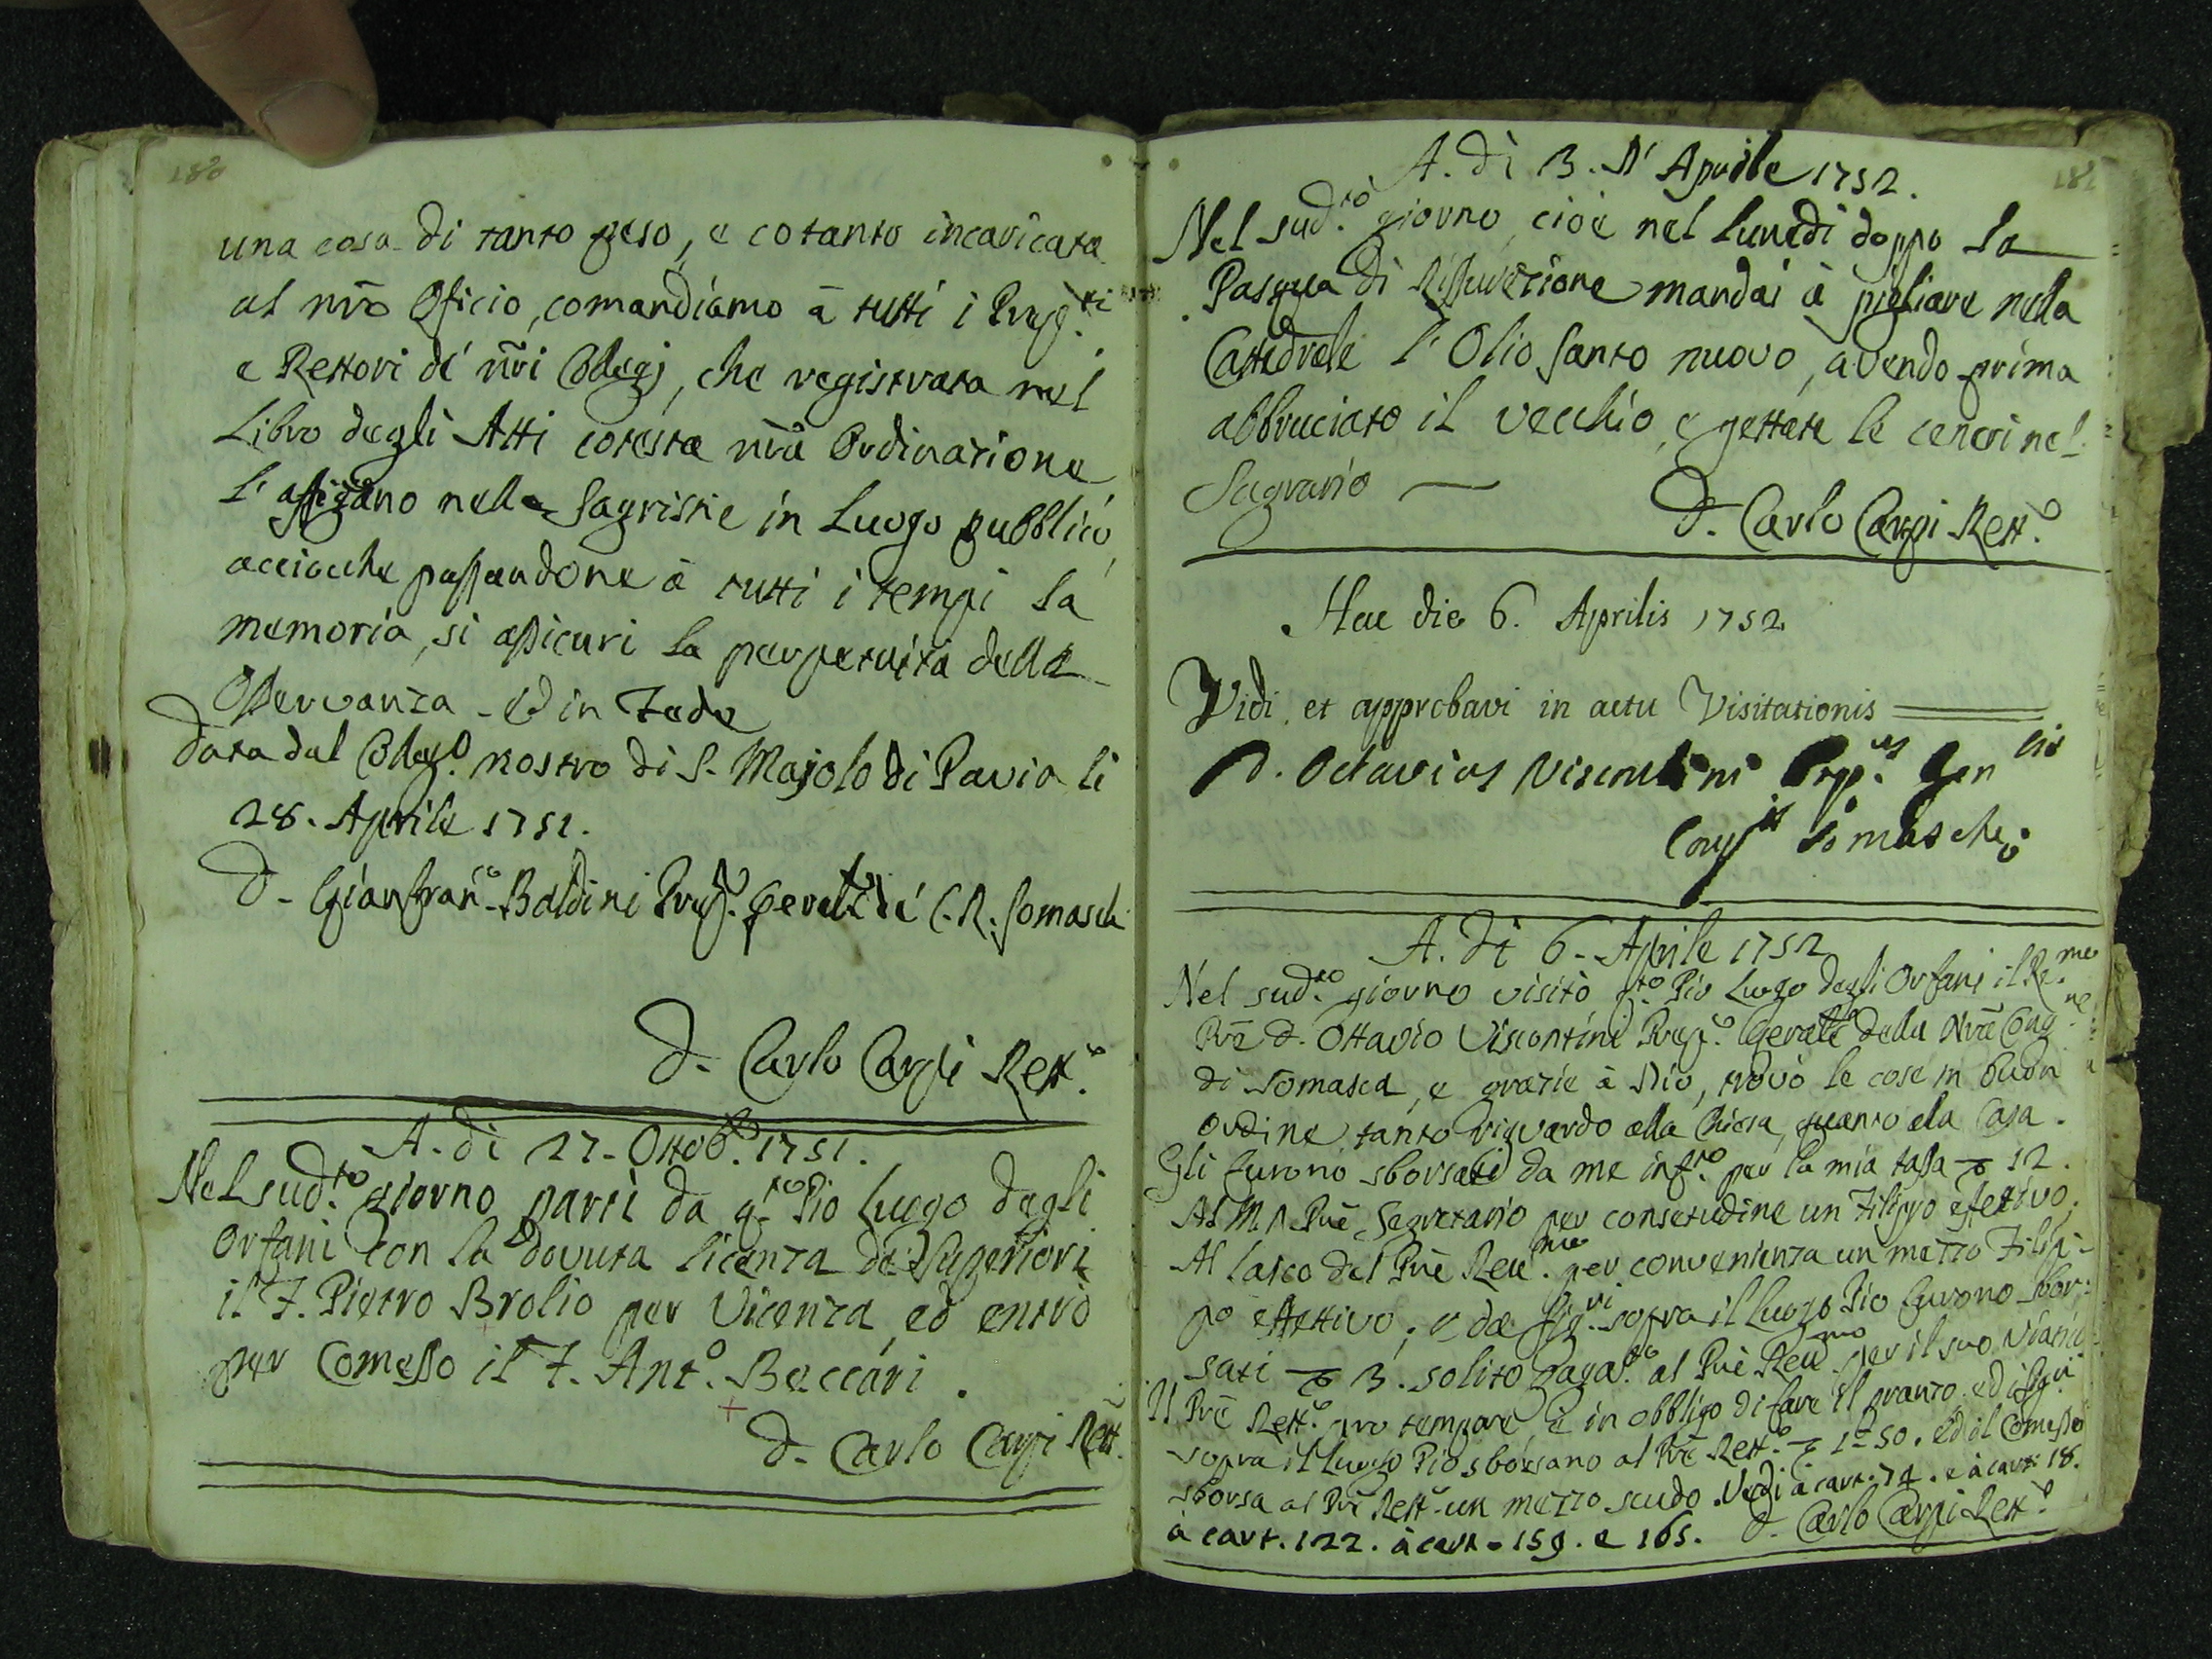 180
una cosa di tanto peso, e cotanto incaricata
al nr̃o Oficio, comandiamo à tutti i Prep.ti
e Rettori de' nr̃i Collegj, che registrata nel
Libro degli Atti cotesta nr̃a Ordinazione
l'affigano nelle Sagristie in Luogo pubblico,
acciocche passandone à tutti i tempi la
memoria, si assicuri la perpetuità della
Osservanza. Ed in Fede
Data dal Colleg.o nostro di S. Majolo di Pavia li
28. Aprile 1751.
D. Gianfran.co Baldini Prep.o Gen̄le de' C. R. Somasch
D. Carlo Carpi Rett.e
A. dì 27. Ottob.e 1751.
Nel sud.to giorno partì da q.to Pio Luogo degli
Orfani con la dovuta licenza de' Superiori
il F. Pietro Brolio per Vicenza, ed entrò
per Comesso il F. Ant.o Beccari.
D. Carlo Carpi Rett.
181
A. dì 3. D' Aprile 1752.
Nel sud.to giorno, cioè nel Lunedì doppo la
Pasqua di Rissurezione mandai à pigliare nella
Cattedrale l'Olio Santo nuovo, avendo prima
abbruciato il vecchio, e gettate le ceneri nel
Sagrario
D. Carlo Carpi Rett.e
Hac die 6. Aprilis 1752.
Vidi, et approbavi in actu Visitationis
D. Octavius Viscontini Prep.us Gen.lis
Cong.is Somaschae
A. dì 6. Aprile 1752
Nel sud.to giorno visitò q.to Pio Luogo degli Orfani il Re.mo
Prẽ D. Ottavio Viscontini Prep.o Gen̄le della Nr̃a Cong.ne
di Somasca, e grazie à Dio, trovò le cose in buon
ordine, tanto riguardo alla Chiesa, quanto alla Casa.
Gli furono sborsati da me inf.to per la mia tassa 12.
Al M. R. Prẽ Segretario per consetudine un Filippo effettivo;
Al laico del Prẽ Reu.mo per convenienza un mezzo Filip-
po effettivo; e da Sig.ri sopra il Luogo Pio furono sbor-
sati 3. solito paga.to al Prẽ Reu.mo per il suo viatico
Il Prẽ Rett.e pro tempore, è in obbligo di fare il pranzo, ed i Sig.ri
sopra il Luogo Pio sborsano al Prẽ Rett.e 1=50. ed il Comesso
sborsa al Prẽ Rett.e un mezzo scudo. Vedi à cart. 74. e à cart. 18.
à cart. 122. à cart. 159. e 165. D. Carlo Carpi Rett.e